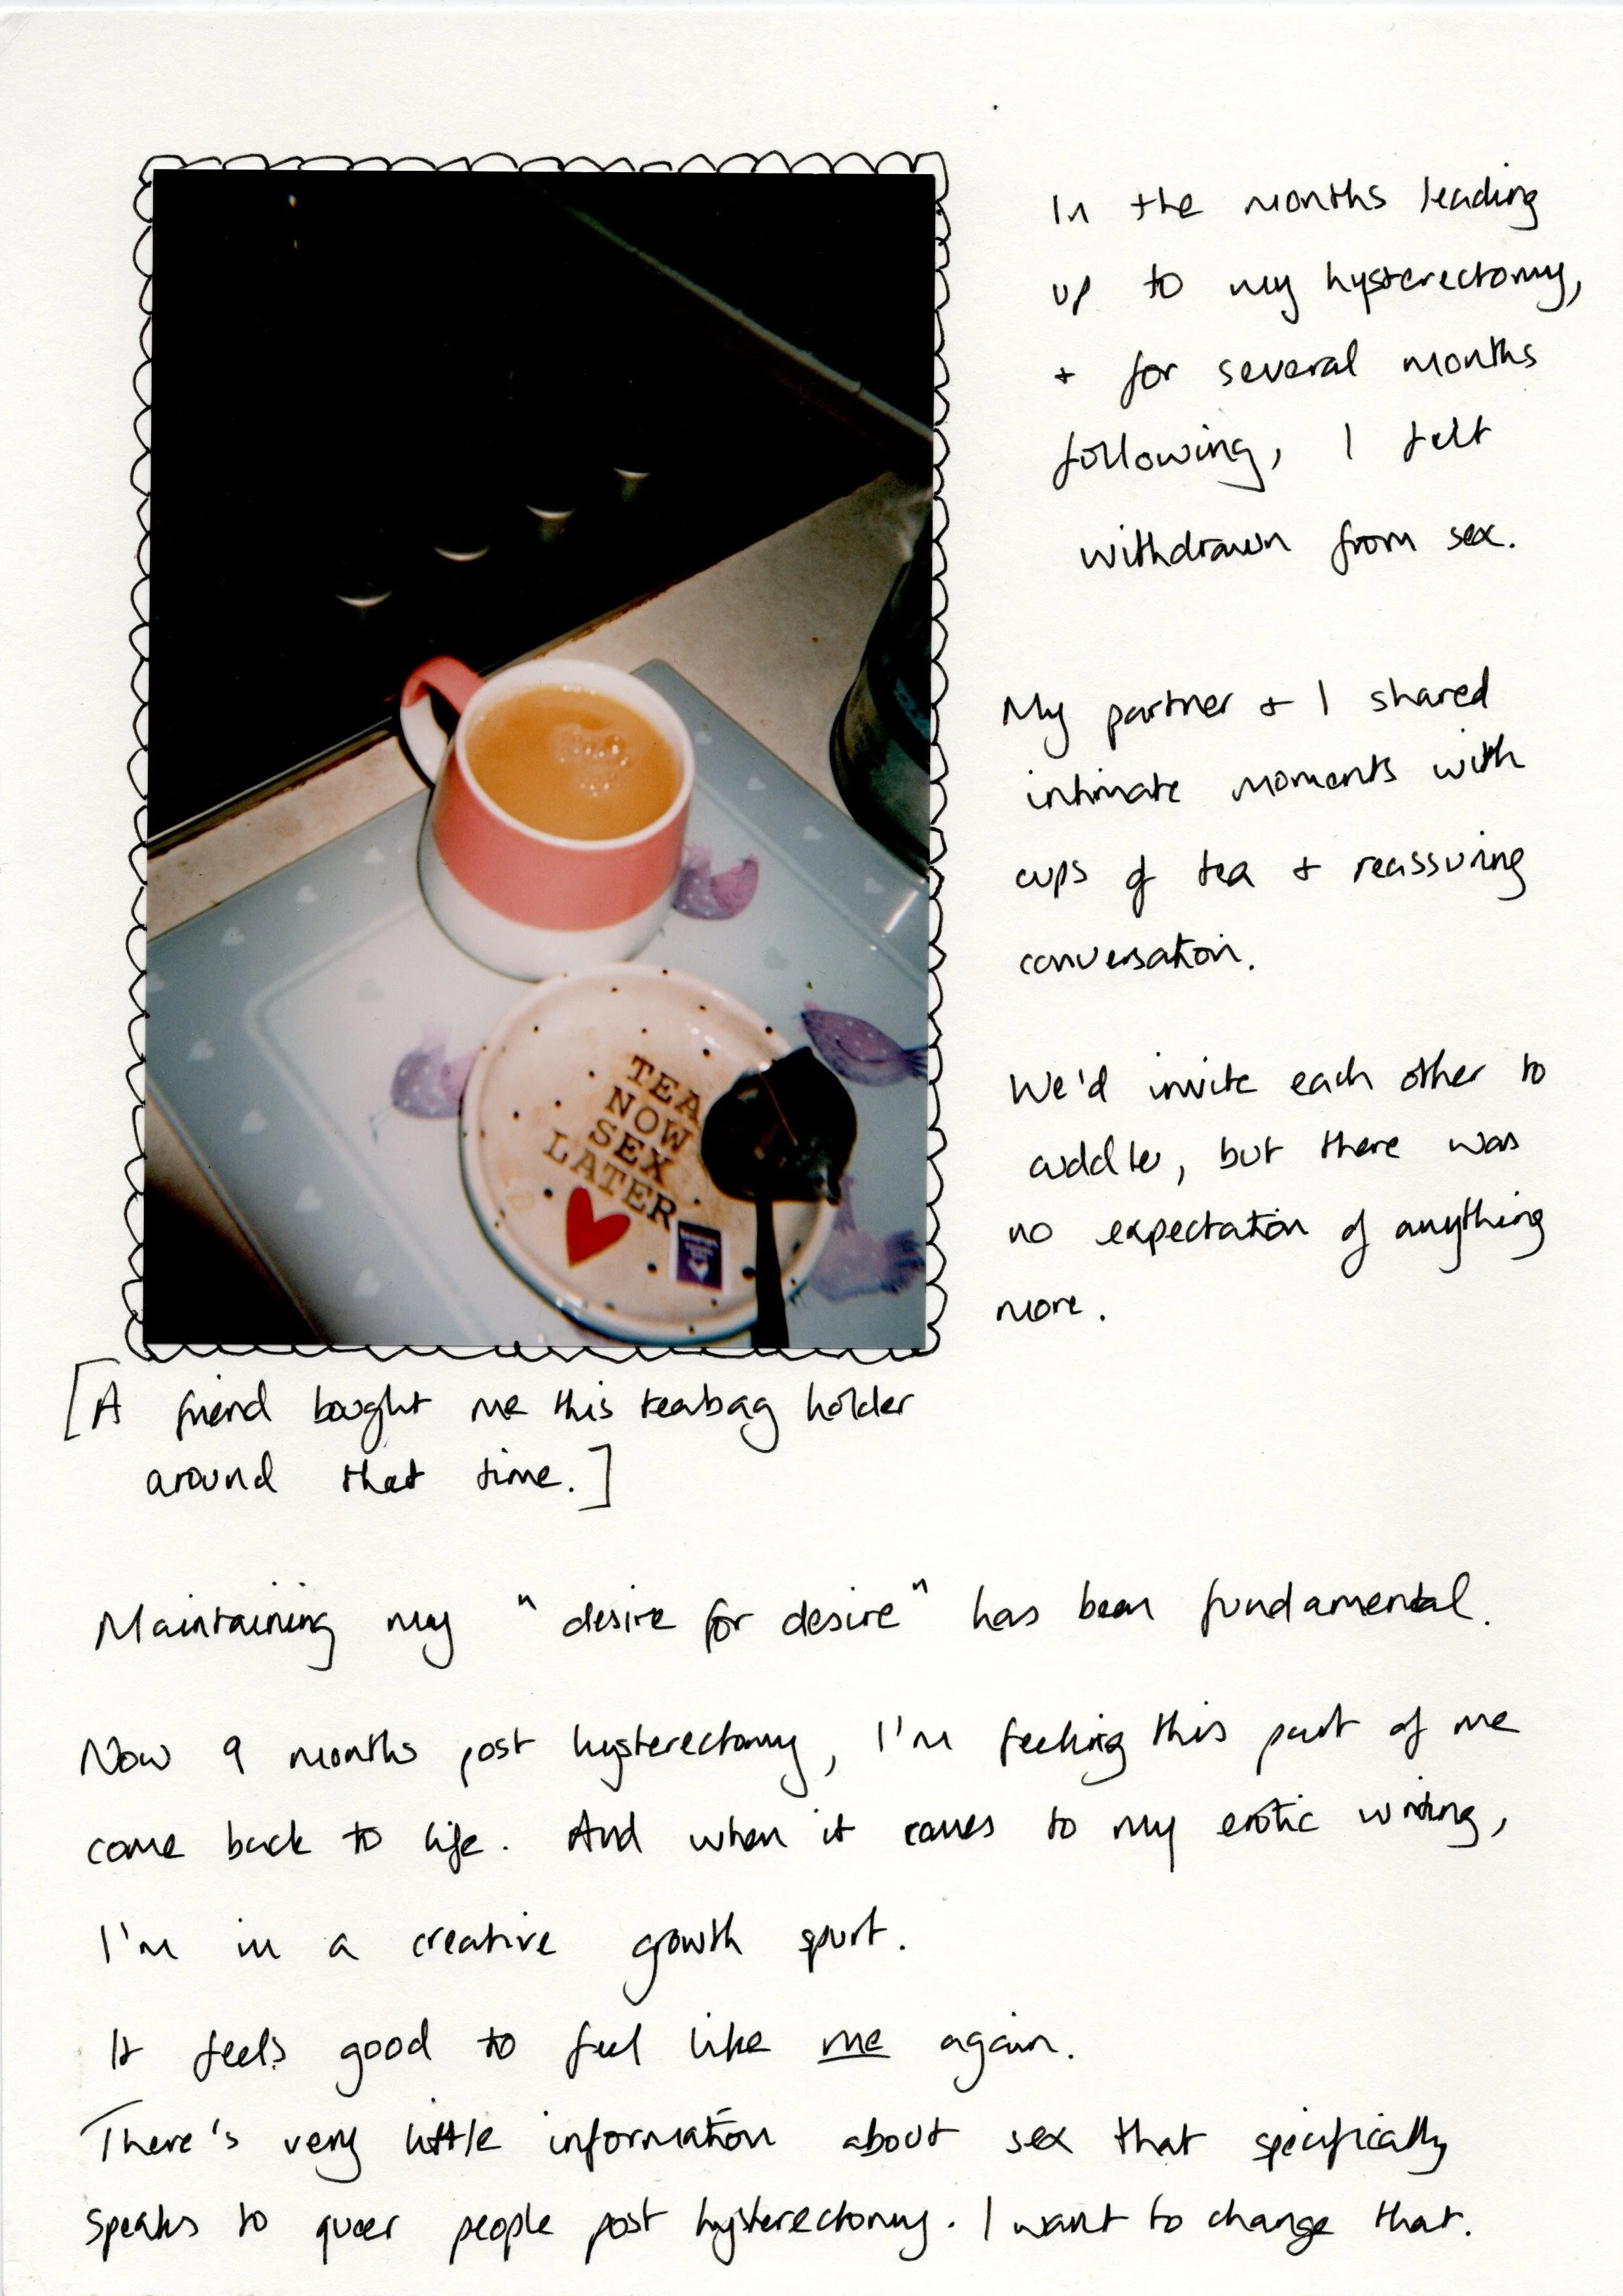 In the months leading
up to my hysterectomy,
+ for several months
following, I felt
withdrawn from sex.
My partner + I shared
intimate moments with
cups of tea + reassuring
conversation.
We'd invite each other to
cuddle, but there was
no expectation of anything
more.
TEA
NOW
SEX
LATER
[A friend bought me this teabag holder
around that time.]
Maintaining my "desire for desire" has been fundamental.
Now 9 months post hysterectomy, I'm feeling this part of me
come back to life. And when it comes to my erotic writing,
I'm in a creative growth spurt.
It feels good to feel like me again.
There's very little information about sex that specifically
speaks to queer people post hysterectomy. I want to change that.